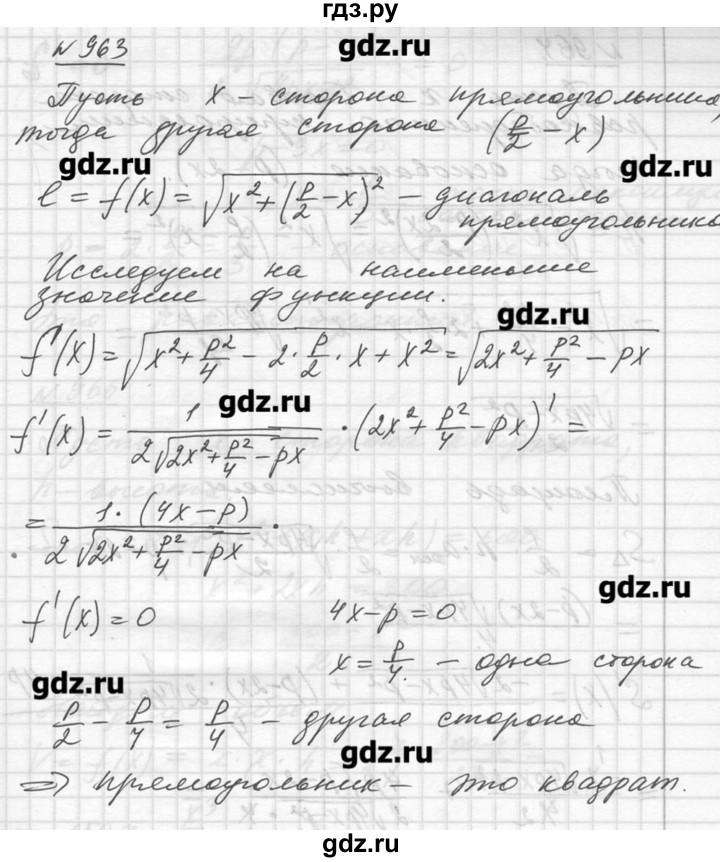 гдз.ру
№ 963
gdz.ru
Пусть x – сторона прямоугольника,
тогда другая сторона (p/2 – x)
gdz.ru
gdz.ru
l = f(x) = √(x² + (p/2 – x)²) – диагональ
прямоугольника
Исследуем на наименьшие
значение функции.
gdz.ru
f(x) = √(x² + p²/4 – 2 · p/2 · x + x²) = √(2x² + p²/4 – px)
gdz.ru
f'(x) = 1/(2√(2x² + p²/4 – px)) · (2x² + p²/4 – px)' =
= 1 · (4x – p)/(2√(2x² + p²/4 – px)) .
gdz.ru
f'(x) = 0 4x – p = 0
x = p/4. – одна сторона
gdz.ru
p/2 – p/4 = p/4 – другая сторона
gdz.ru
=> прямоугольник – это квадрат.
gdz.ru